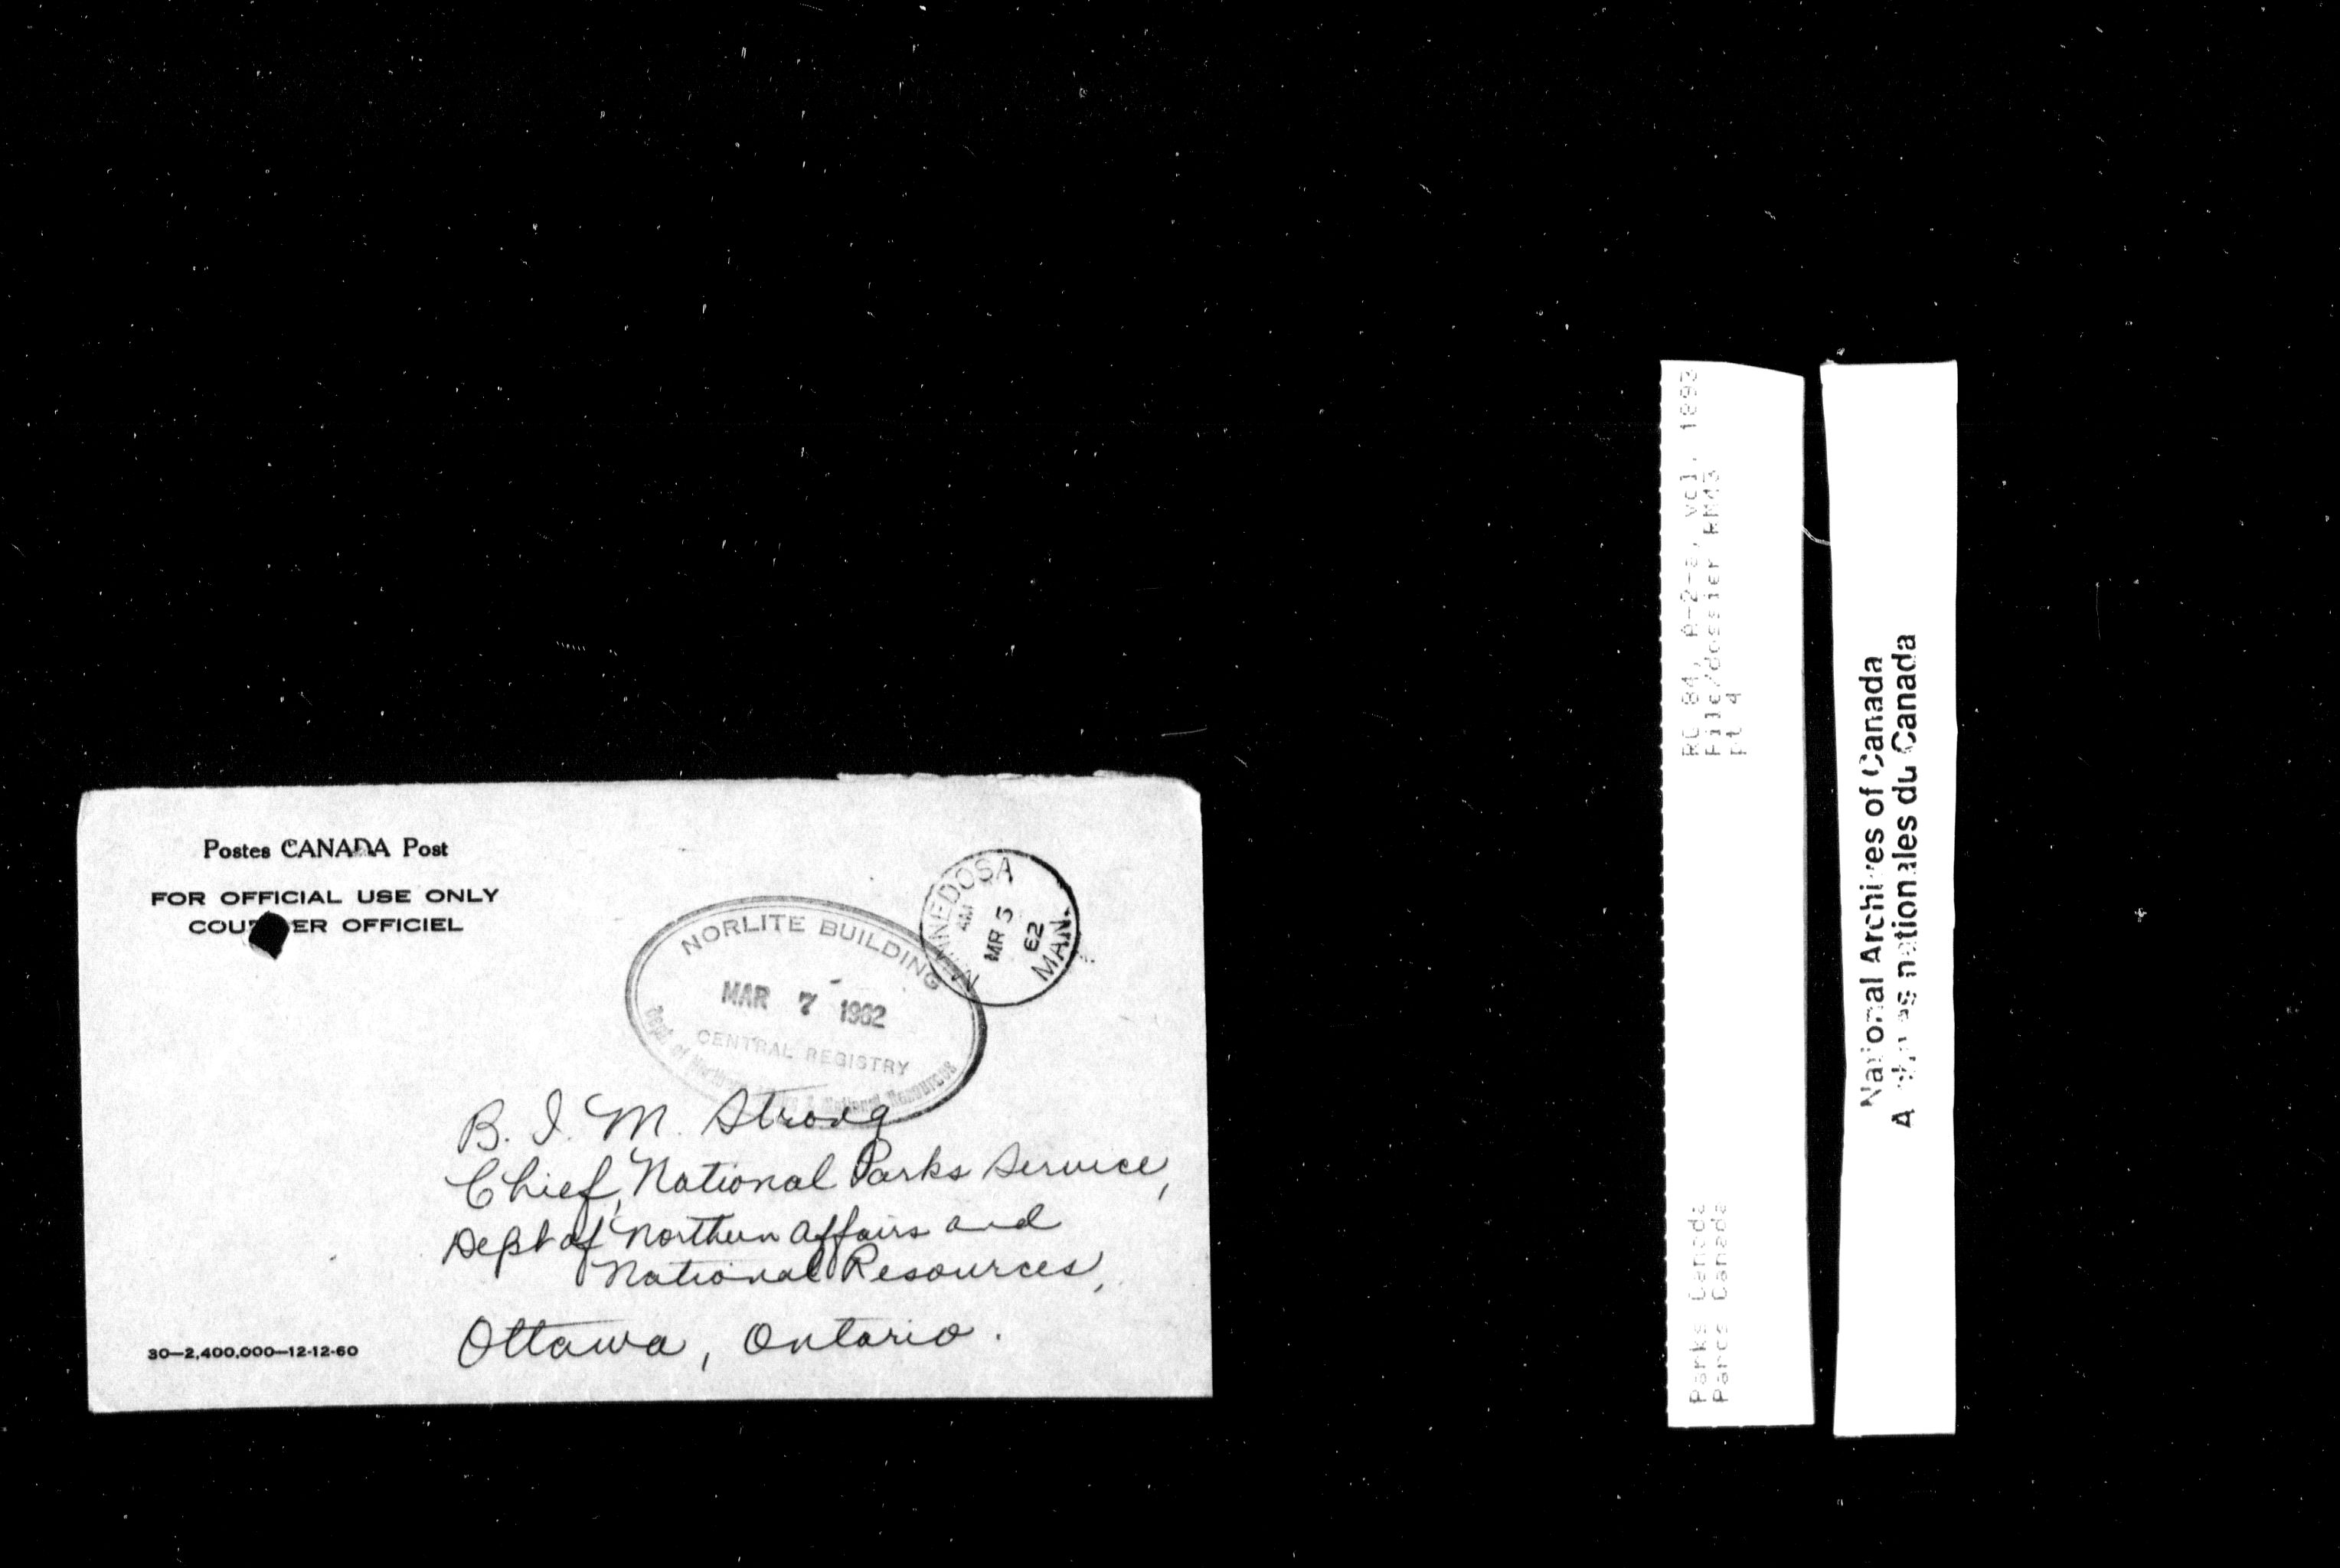 Postes CANADA Post
FOR OFFICIAL USE ONLY
COU ER OFFICIEL
MINNEDOSA
AM
MR 5
62
MAN.
NORLITE BUILDING
MAR 7 1962
CENTRAL REGISTRY
Dept. of Northern & National Resources
B. I. M. Strong
Chief, National Parks Service,
Dept of Northern Affairs and
National Resources,
Ottawa, Ontario.
30—2,400,000—12-12-60
RG 84, A-2-a, vol. 1893
File/dossier RM43
pt 4
Parks Canada
Parcs Canada
National Archives of Canada
Archives nationales du Canada